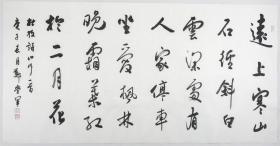 遠上寒山
石徑斜白
雲深處有
人家停車
坐愛楓林
晚霜葉紅
於二月花
杜牧詩山行一首
庚子